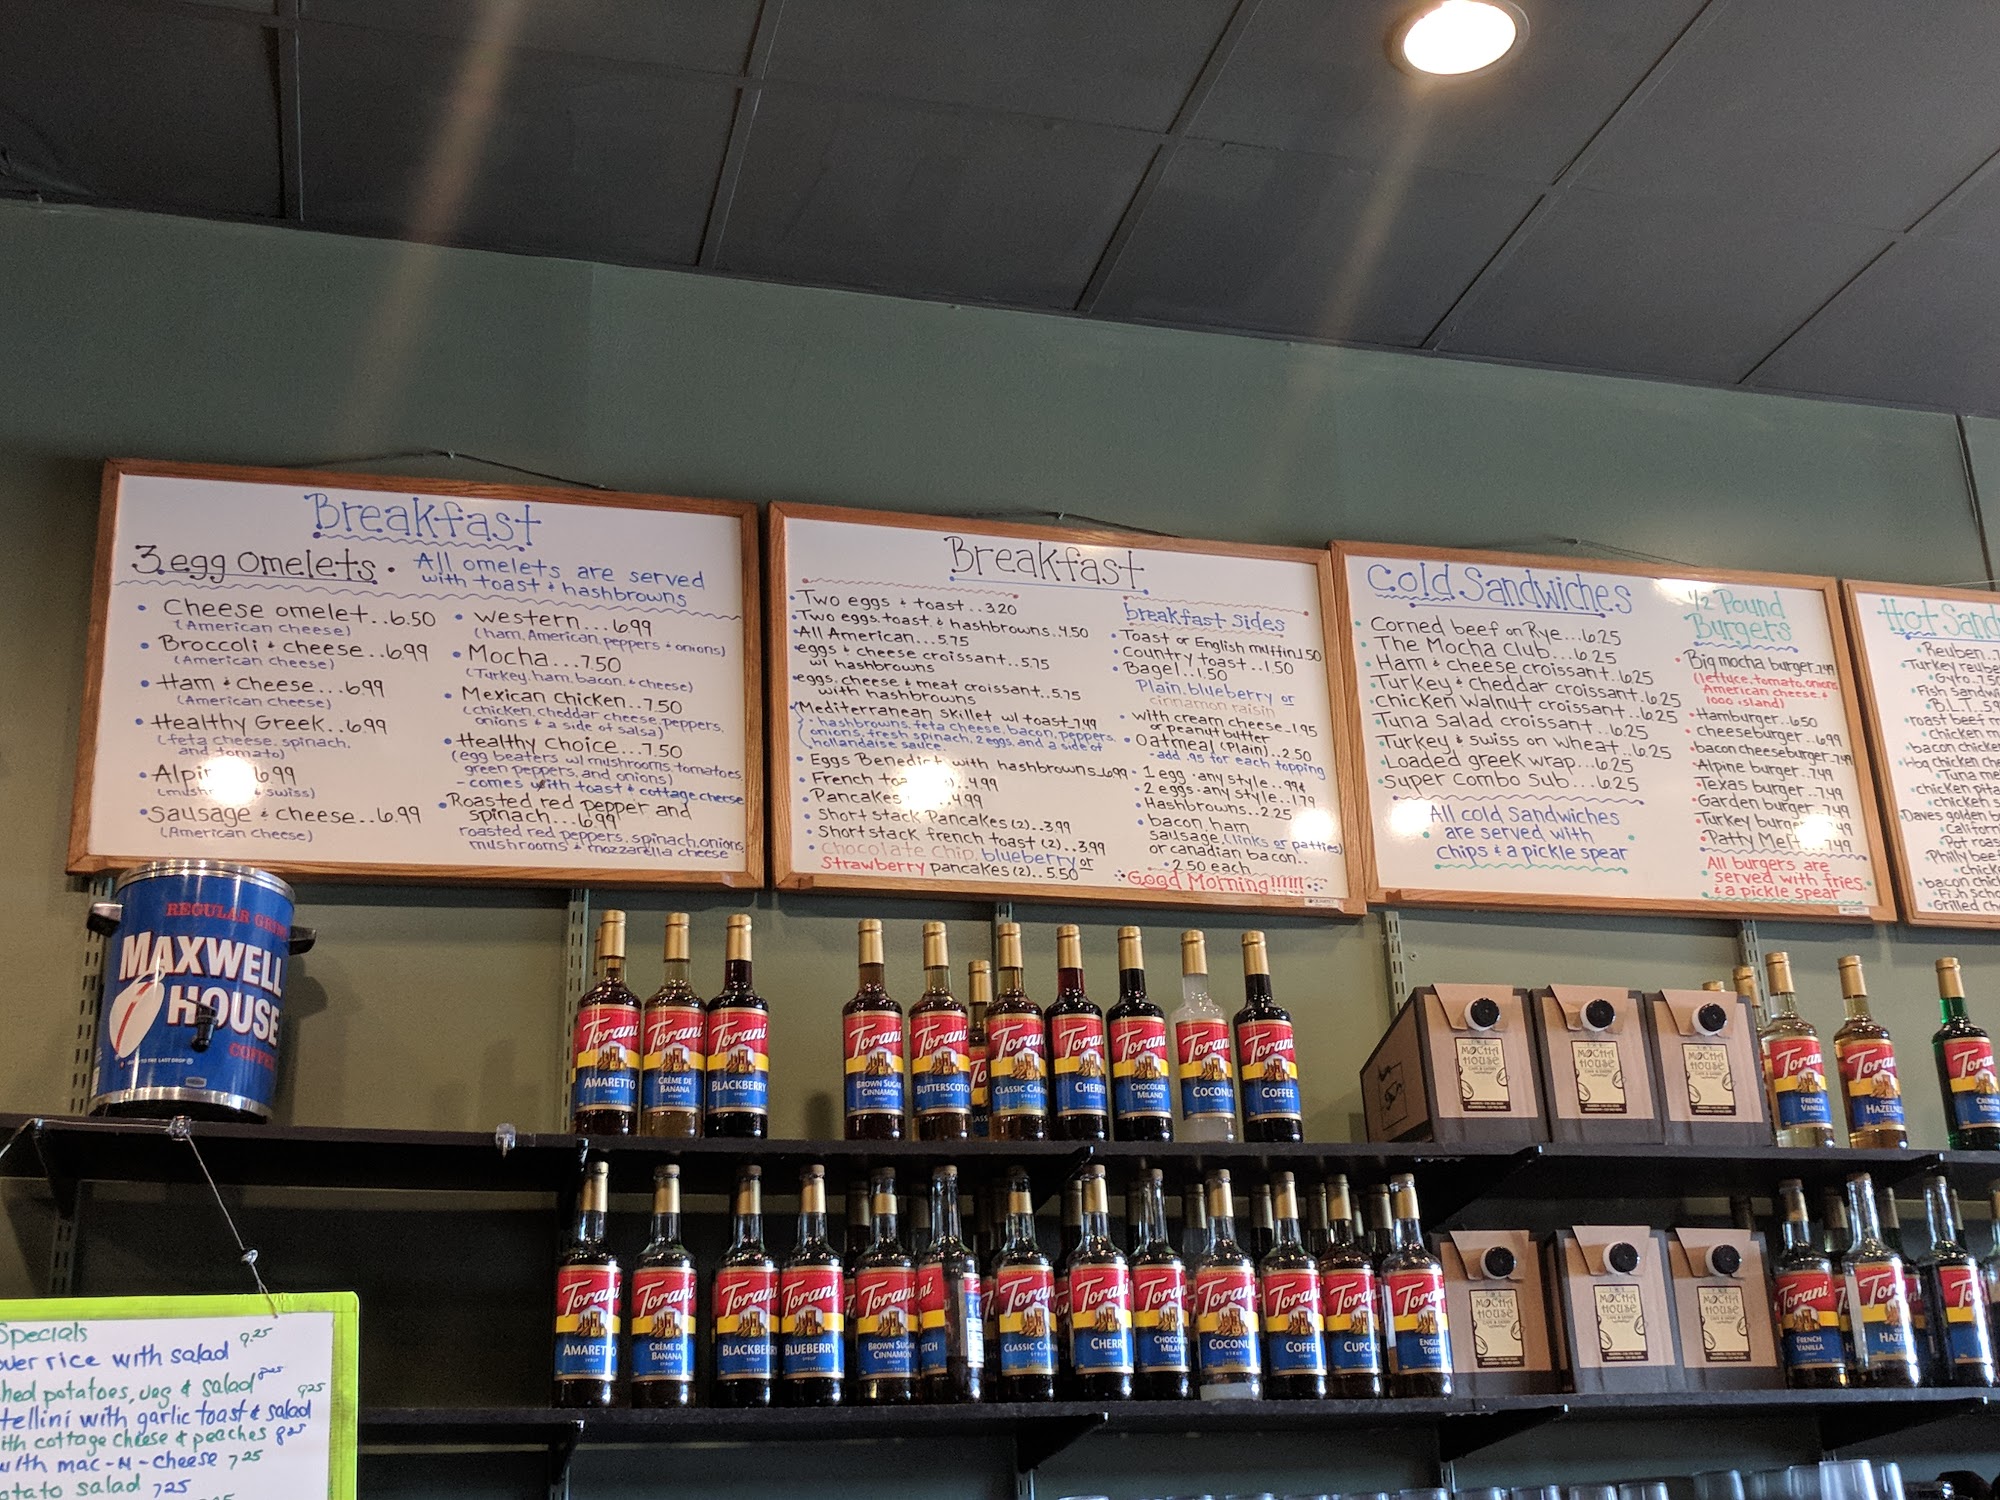 Breakfast
3 egg Omelets. All omelets are served
with toast & hashbrowns
• Cheese omelet..6.50
(American cheese)
• Broccoli & cheese..6.99
(American cheese)
• Ham & Cheese...6.99
(American cheese)
• Healthy Greek..6.99
(feta cheese, spinach,
and tomato)
6.99
swiss)
• Sausage & cheese..6.99
(American cheese)
• Western...6.99
(ham, American, peppers & onions)
• Mocha...7.50
(Turkey, ham, bacon, & cheese)
• Mexican chicken..7.50
(chicken, cheddar cheese, peppers,
onions & a side of salsa)
• Healthy Choice...7.50
(egg beaters w/ mushrooms, tomatoes,
green peppers, and onions)
- comes with toast & cottage cheese
• Roasted red pepper and
spinach...6.99
roasted red peppers, spinach, onions,
mushrooms & mozzarella cheese
Breakfast
• Two eggs & toast..3.20
• Two eggs, toast, & hashbrowns..4.50
• All American...5.75
• eggs & cheese croissant..5.75
w/ hashbrowns
• eggs, cheese & meat croissant..5.75
with hashbrowns
• Mediterranean skillet w/ toast..7.49
(hashbrowns, feta cheese, bacon, peppers,
onions, fresh spinach, 2 eggs, and a side of
hollandaise sauce.
• Eggs Benedict with hashbrowns..6.99
• French 4.99
• Pancakes 4.99
• Short stack Pancakes (2)..3.99
• Short stack french toast (2)..3.99
• Chocolate Chip, blueberry or
Strawberry pancakes (2)..5.50
breakfast sides
• Toast or English muffin..1.50
• Country toast..1.50
• Bagel..1.50
Plain, blueberry or
cinnamon raisin
• with cream cheese..1.95
or peanut butter
• Oatmeal (plain)..2.50
- add .95 for each topping
• 1 egg - any style...99¢
• 2 eggs - any style...1.79
• Hashbrowns..2.25
• bacon, ham,
sausage (links or patties)
or canadian bacon..
• 2.50 each
Good Morning!!!!!!
Cold Sandwiches
• Corned beef on Rye...6.25
• The Mocha Club...6.25
• Ham & cheese croissant..6.25
• Turkey & cheddar croissant..6.25
• Chicken walnut croissant..6.25
• Tuna Salad croissant...6.25
• Turkey & swiss on wheat..6.25
• Loaded greek wrap...6.25
• Super Combo Sub....6.25
All cold Sandwiches
are served with
chips & a pickle spear
1/2 Pound
Burgers
• Big mocha burger..7.49
(lettuce, tomato, onions,
American cheese, &
1000 island)
• Hamburger..6.50
• cheeseburger..6.99
• bacon cheeseburger..7.49
• Alpine burger..7.49
• Texas burger..7.49
• Garden burger..7.49
• Turkey 7.49
• Patty Melt...7.49
All burgers are
served with fries.
& a pickle spear
Hot Sand
Reuben..7
Turkey reube
Gyro..7.50
Fish Sandwi
B.L.T..5.9
roast beef m
chicken m
bacon chicken
bbq chicken che
Tuna me
chicken pita
chicken s
Daves golden b
Californi
Pot roas
Philly beef
chick
bacon chic
Fish Scho
Grilled ch
REGULAR GRIN
MAXWELL
HOUSE
COFFEE
Torani AMARETTO
Torani CRÈME DE BANANA
Torani BLACKBERRY
Torani BROWN SUGAR CINNAMON
Torani BUTTERSCOTCH
Torani CLASSIC CARA
Torani CHERRY
Torani CHOCOLATE MILANO
Torani COCONUT
Torani COFFEE
THE MOCHA HOUSE
THE MOCHA HOUSE
THE MOCHA HOUSE
Torani FRENCH VANILLA
Torani HAZELN
Torani CRÈME DE MENTH
Torani AMARETTO
Torani CRÈME DE BANANA
Torani BLACKBERRY
Torani BLUEBERRY
Torani BROWN SUGAR CINNAMON
TCH
Torani CLASSIC CARA
Torani CHERR
Torani CHOCOLA MILAN
Torani COCONU
Torani COFFE
Torani CUPCA
Torani ENGLI TOFFE
THE MOCHA HOUSE
THE MOCHA HOUSE
THE MOCHA HOUSE
Torani FRENCH VANILLA
Torani HAZE
Torani
Specials
over rice with salad 9.25
hed potatoes, veg & salad 8.25
tellini with garlic toast & salad 9.25
ith cottage cheese & peaches 8.25
w/th mac-N-cheese 7.25
otato salad 7.25